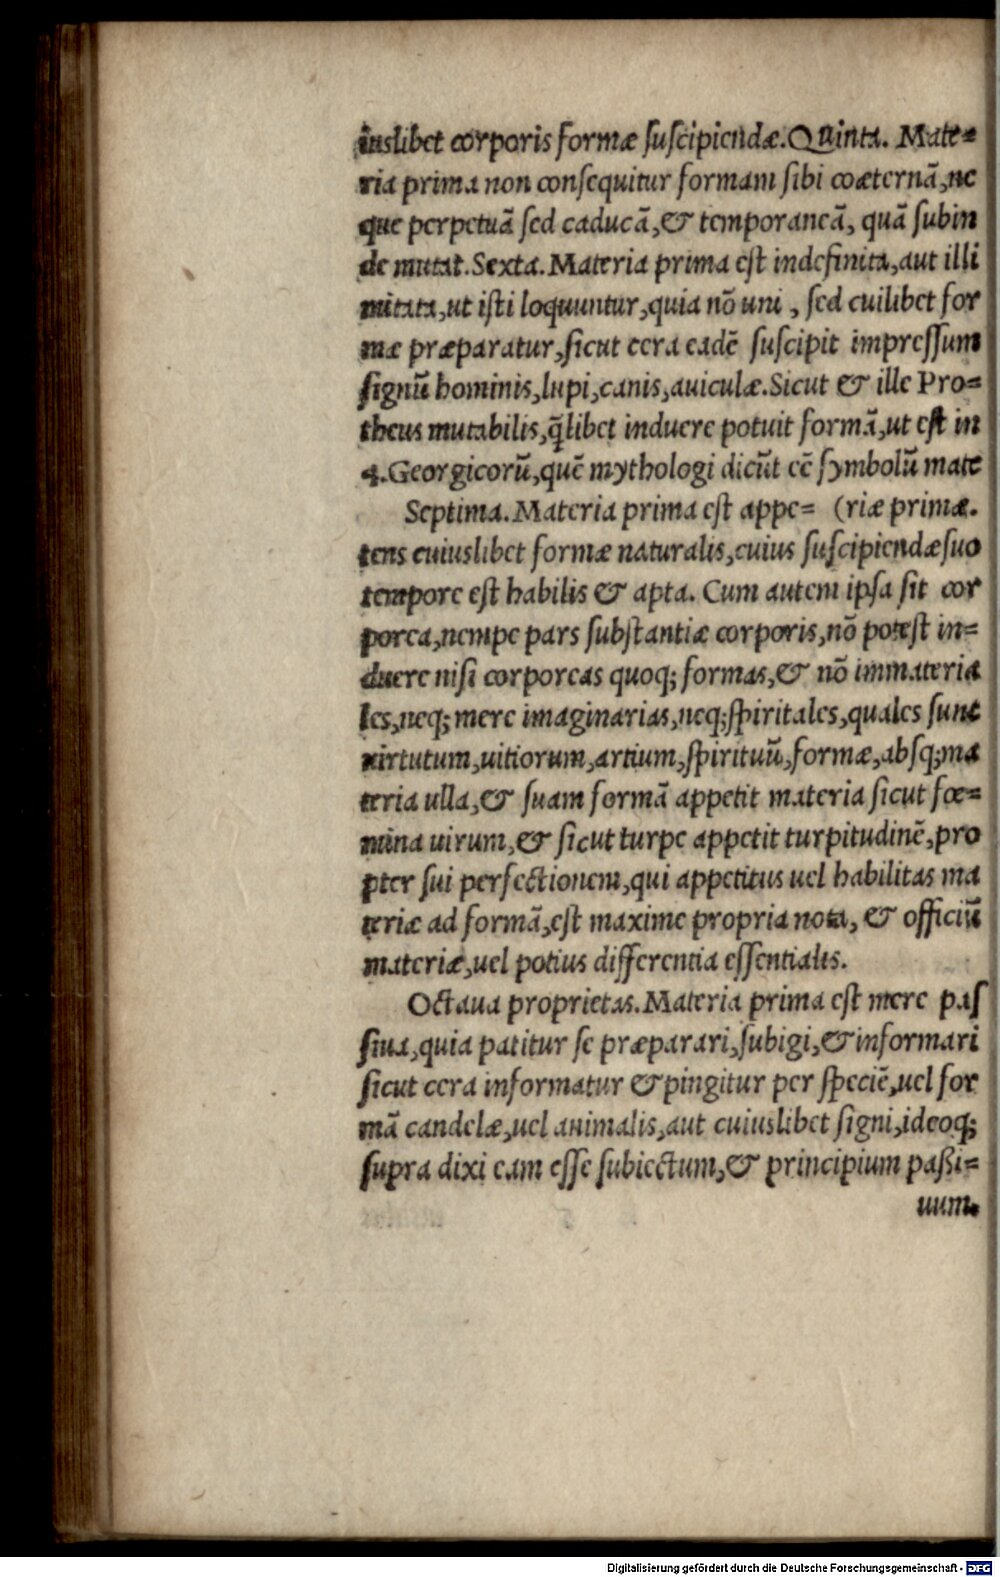 iuslibet corporis formæ ſuſcipiendæ. Quinta. Mate=
ria prima non conſequitur formam ſibi coæternã, ne
que perpetuã ſed caducã, & temporaneã, quã ſubin
de mutat. Sexta. Materia prima eſt indefinita, aut illi
mitata, ut iſti loquuntur, quia nõ uni, ſed cuilibet for
mæ præparatur, ſicut cera eadẽ ſuſcipit impreſſum
ſignũ hominis, lupi, canis, auiculæ. Sicut & ille Pro=
theus mutabilis, q̃libet induere potuit formã, ut eſt in
4. Georgicorũ, quẽ mythologi dicũt eẽ ſymbolũ mate
Septima. Materia prima eſt appe= (riæ primæ.
tens cuiuslibet formæ naturalis, cuius ſuſcipiendæ ſuo
tempore eſt habilis & apta. Cum autem ipſa ſit cor
porea, nempe pars ſubſtantiæ corporis, nõ poteſt in=
duere niſi corporeas quoq; formas, & nõ immateria
les, neq; mere imaginarias, neq; ſpiritales, quales ſunt
uirtutum, uitiorum, artium, ſpirituũ, formæ, abſq; ma
teria ulla, & ſuam formã appetit materia ſicut fœ=
mina uirum, & ſicut turpe appetit turpitudinẽ, pro
pter ſui perfectionem, qui appetitus uel habilitas ma
teriæ ad formã, eſt maxime propria nota, & officiũ
materiæ, uel potius differentia eſſentialis.
Octaua proprietas. Materia prima eſt mere paſ
ſiua, quia patitur ſe præparari, ſubigi, & informari
ſicut cera informatur & pingitur per ſpeciẽ, uel for
mã candelæ, uel animalis, aut cuiuslibet ſigni, ideoq;
ſupra dixi eam eſſe ſubiectum, & principium paßi=
uum.
Digitalisierung gefördert durch die Deutsche Forschungsgemeinschaft - DFG